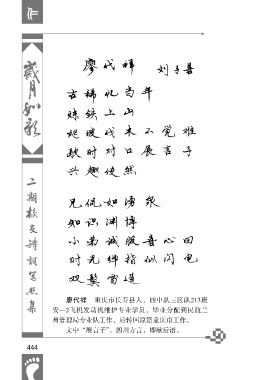 岁月如歌
二期校友诗词笔照集
廖代祥 刘子善
古稀忆当年
炼铁上山
起坡伐木不觉难
敢时对口展言子
兴趣使然
兄侃如涌泉
知识渊博
小弟诚服喜心田
时光绅指似闪电
双鬓
廖代祥 重庆市长寿县人，四中队三区队213班
安—2飞机发动机维护专业学员，毕业分配到民航兰
州管理局专业队工作，后转回原籍重庆市工作。
文中“展言子”，四川方言，即歇后语。
444